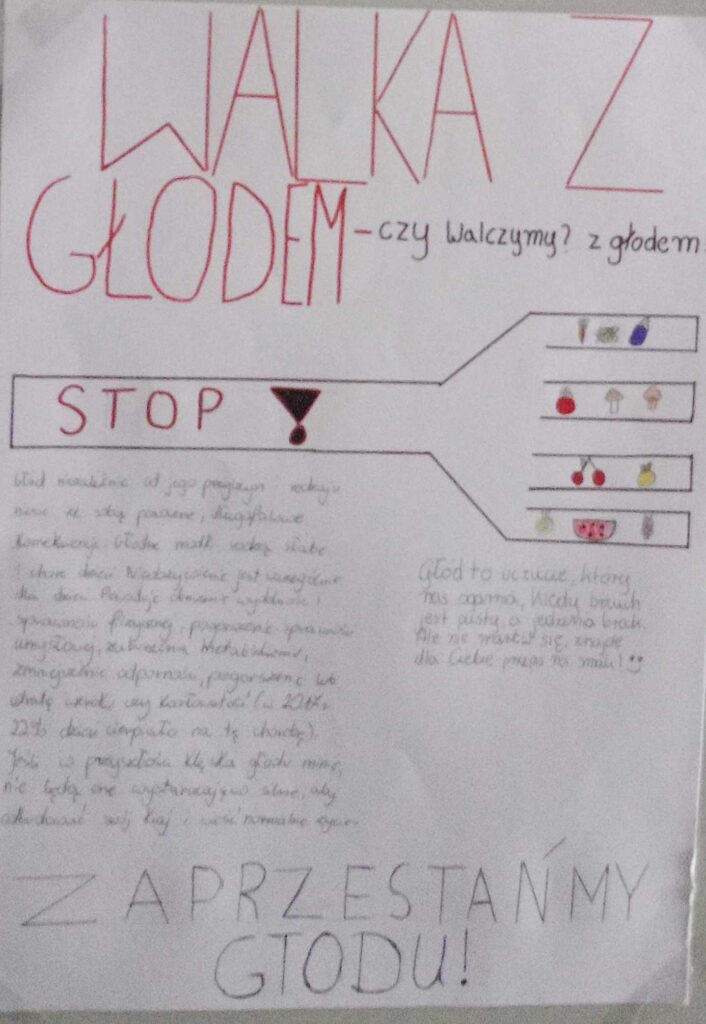 WALKA Z
GŁODEM - czy walczymy? z głodem
STOP !
Głód niezależnie od jego przyczyn i rodzaju
niesie ze sobą poważne, długofalowe
konsekwencje. Głodne matki rodzą słabe
i chore dzieci. Niedożywienie jest szczególnie
dla dzieci. Powoduje obniżenie wydolności i
sprawności fizycznej, pogorszenie sprawności
umysłowej, zaburzenia metabolizmu,
zmniejszenie odporności, pogorszenie lub
utratę wzroku czy karłowatość (w 2017r
22% dzieci cierpiało na tę chorobę).
Jeśli w przyszłości klęska głodu minie,
nie będą one wystarczająco silne, aby
odbudować swój kraj i wieść normalne życie.
Głód to uczucie, który
nas ogarnia, kiedy brzuch
jest pusty a jedzenia brak.
Ale nie martw się, znajdę
dla Ciebie przepis na smak!
ZAPRZESTAŃMY
GŁODU!